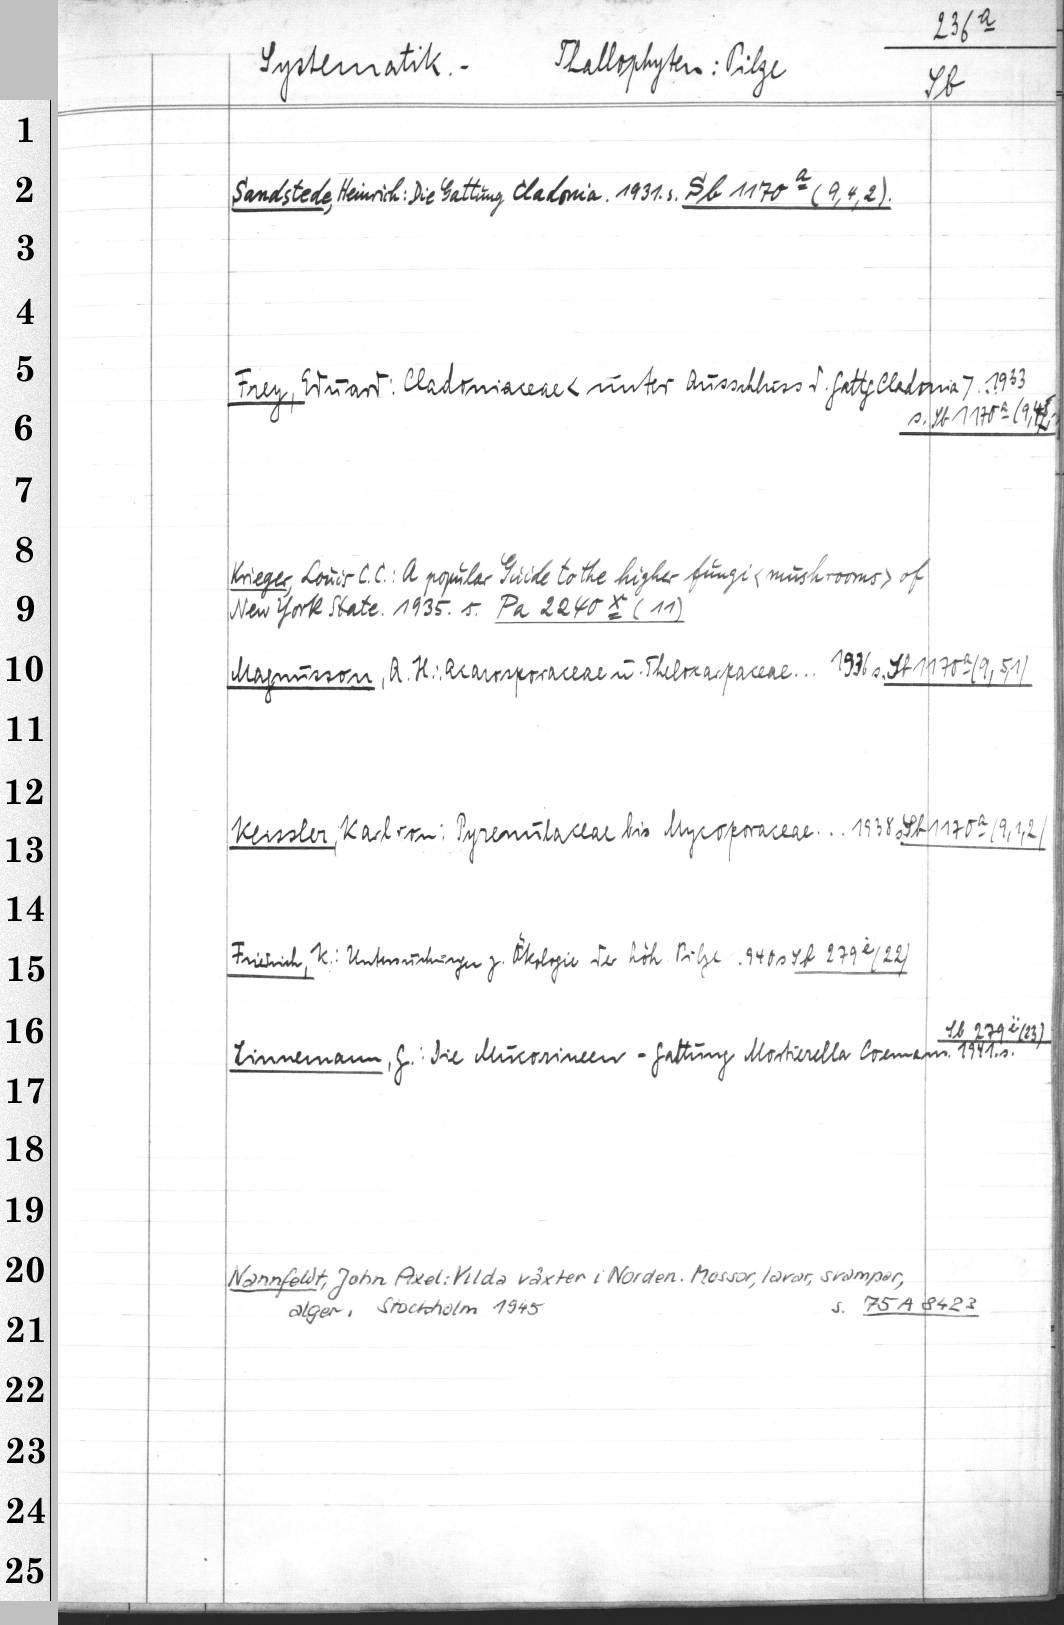 236 a
Systematik. - Thallophyten: Pilze
Sb
1
2 Sandstede, Heinrich: Die Gattung Cladonia. 1931. s. Sb 1170 a (9,4,2).
3
4
5 Frey, Eduard: Cladoniaceae < unter Ausschluss d. Gattg Cladonia >. 1933
6 s. Sb 1170 a (9,4
7
8 Krieger, Louis C.C.: A popular Guide to the higher fungi <mushrooms> of
9 New York State. 1935. s. Pa 2240 x (11)
10 Magnusson, A. H.: Acarosporaceae u. Thelocarpaceae... 1936 s. Sb 1170 a (9,5,1)
11
12
13 Keissler, Karl von: Pyrenulaceae bis Mycoporaceae... 1938 s. Sb 1170 a (9,1,2)
14
15 Friedrich, K.: Untersuchungen z. Ökologie der höh. Pilze. 940 s Sb 279 i (22)
16 Sb 279 ii (23)
Linnemann, G.: Die Mucorineen - Gattung Mortierella Coemans. 1941. s.
17
18
19
20 Nannfeldt, John Axel: Vilda växter i Norden. Mossor, lavar, svampar,
21 alger. Stockholm 1945 s. 75 A 8423
22
23
24
25